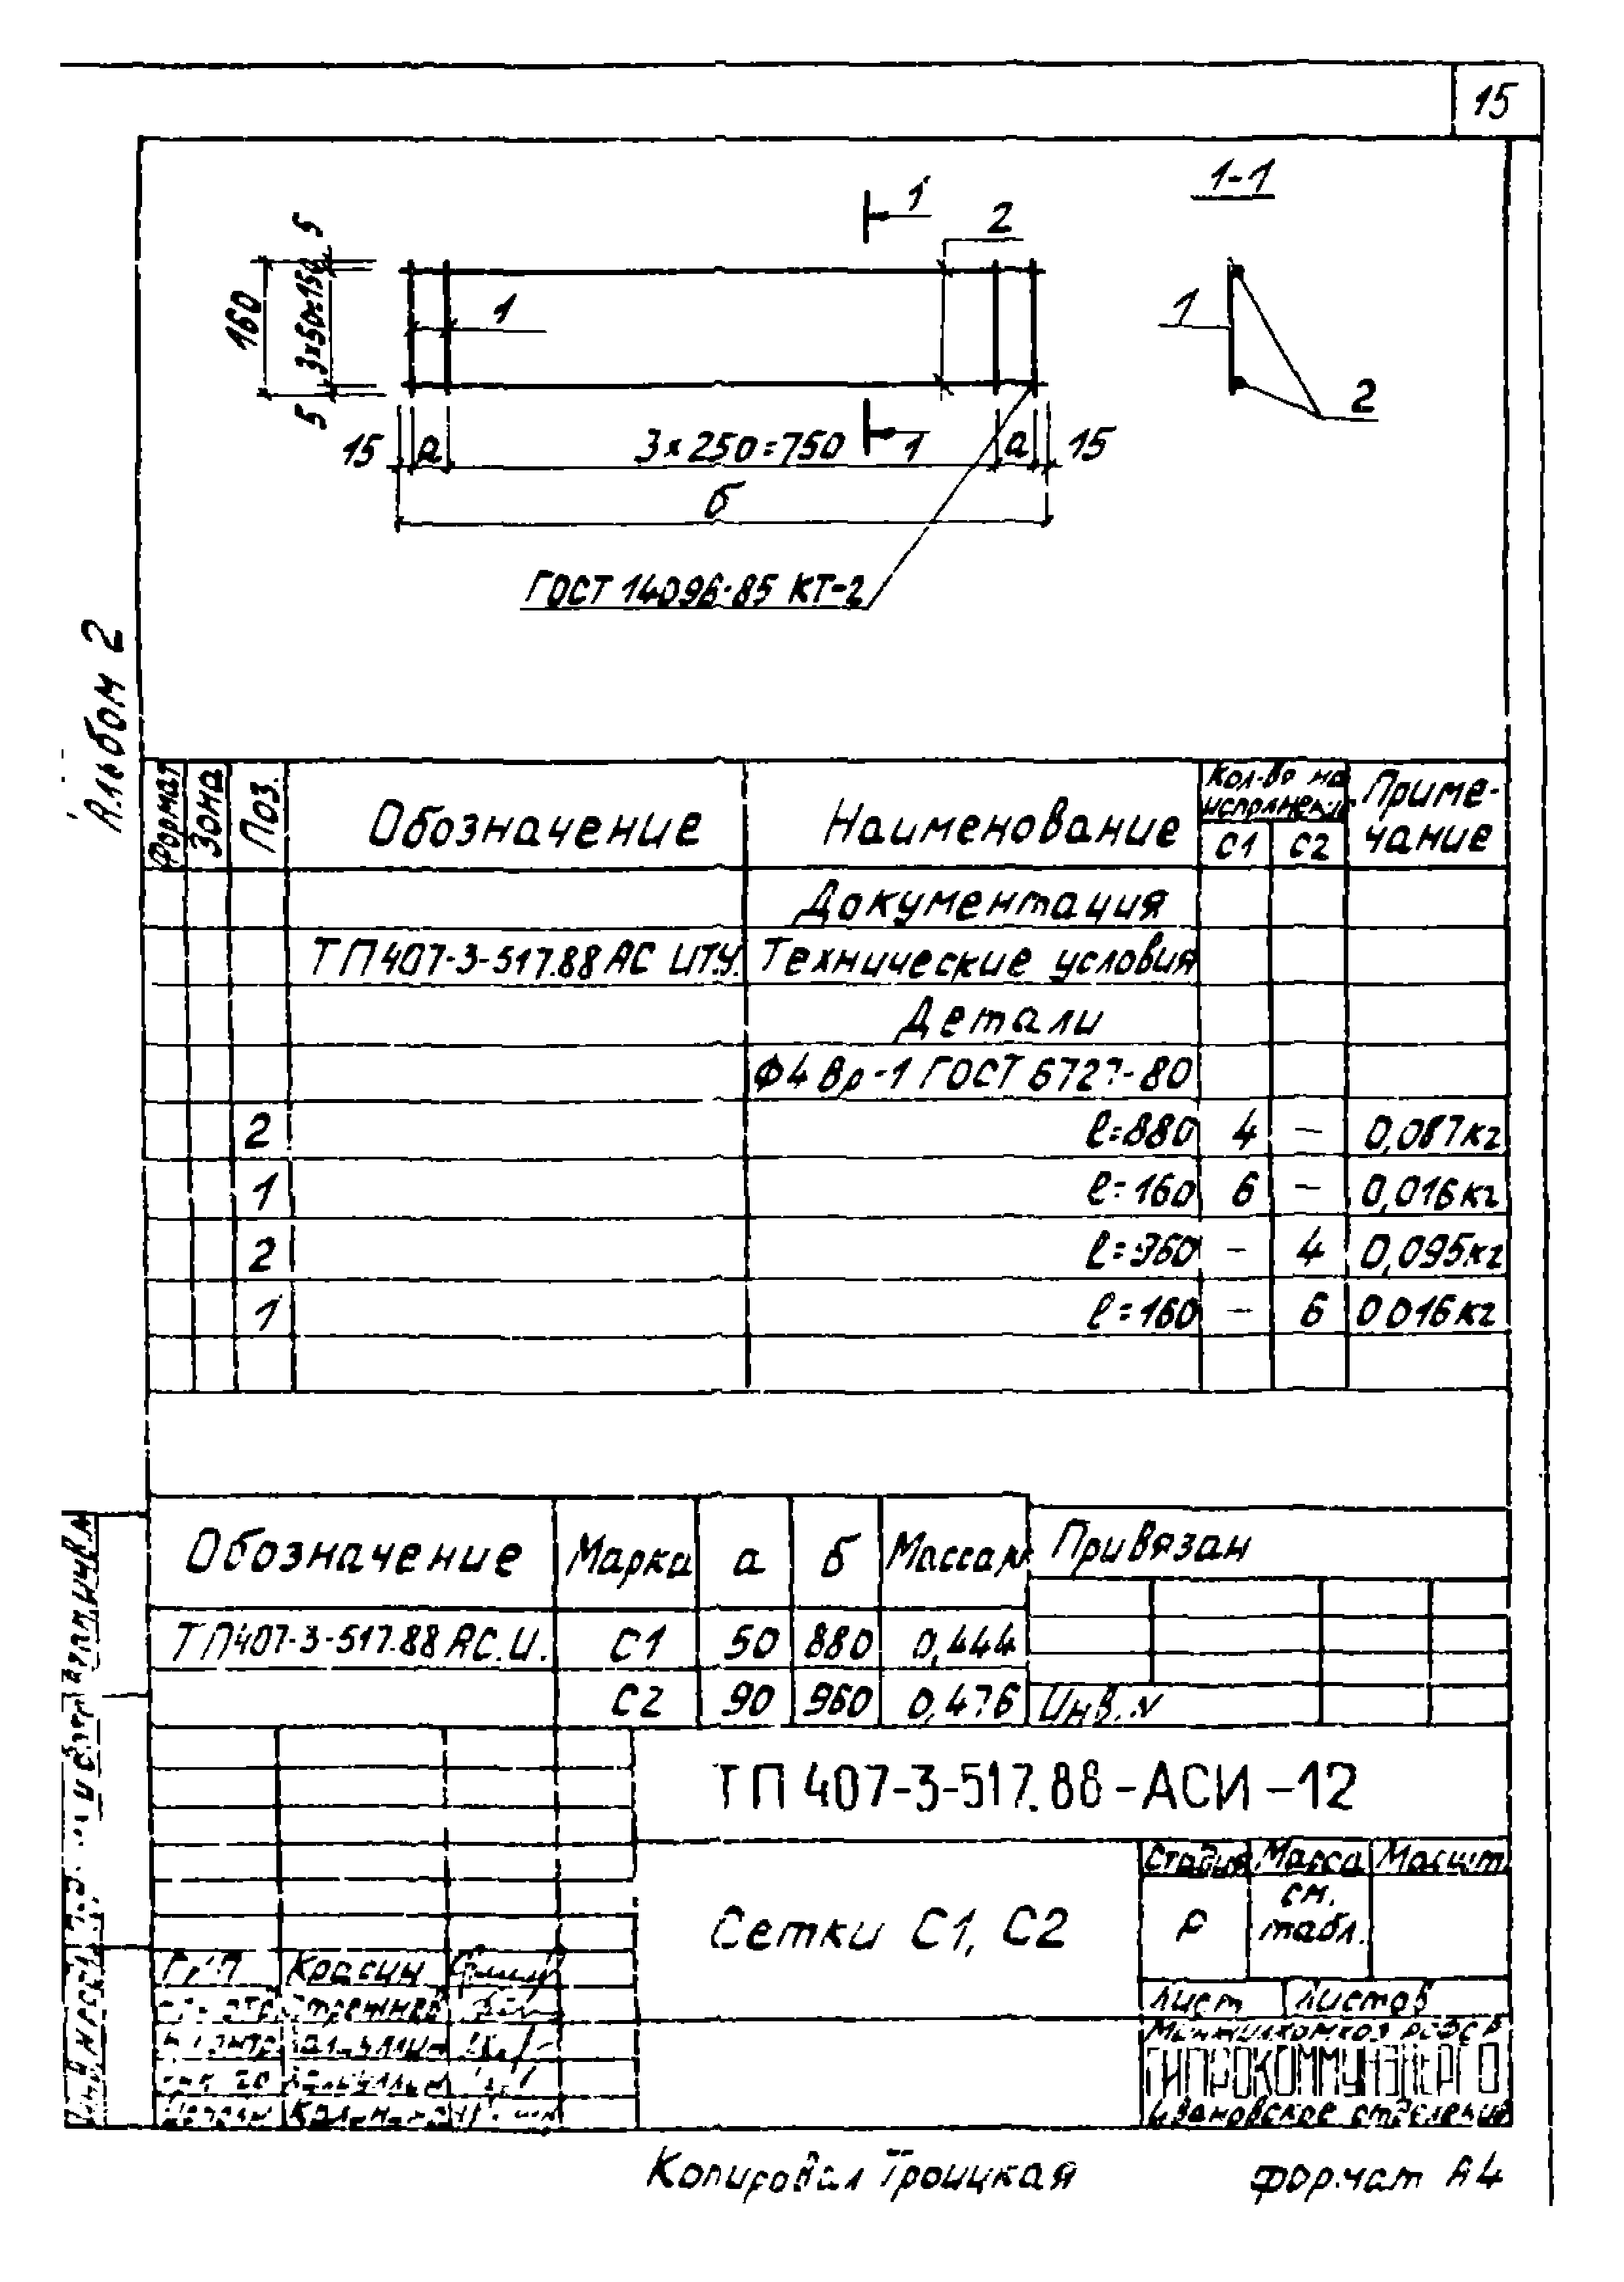 15
1-1
1
2
5
160
3×50=150
5
1
1
2
15
а
3×250=750
1
а
15
б
ГОСТ 14096-85 КТ-2
Альбом 2
Формат Зона Поз. Обозначение Наименование Кол-во на исполнение С1 С2 Примечание
Документация
ТП407-3-517.88 АС И.Т.У. Технические условия
Детали
Ф4 Вр-1 ГОСТ 6727-80
2 ℓ=880 4 – 0,087кг
1 ℓ=160 6 – 0,016кг
2 ℓ=960 – 4 0,095кг
1 ℓ=160 – 6 0,016кг
Обозначение Марка а б Масса Привязан
ТП407-3-517.88 АС.И. С1 50 880 0,444
С2 90 960 0,476 Инв. №
ТП 407-3-517.88-АСИ-12
Сетки С1, С2
Стадия Масса Масшт
Р см. табл.
Лист Листов
ГИП Красин
Минжилкомхоз РСФСР
ГИПРОКОММУНЭНЕРГО
Ивановское отделение
Копировал Троицкая формат А4